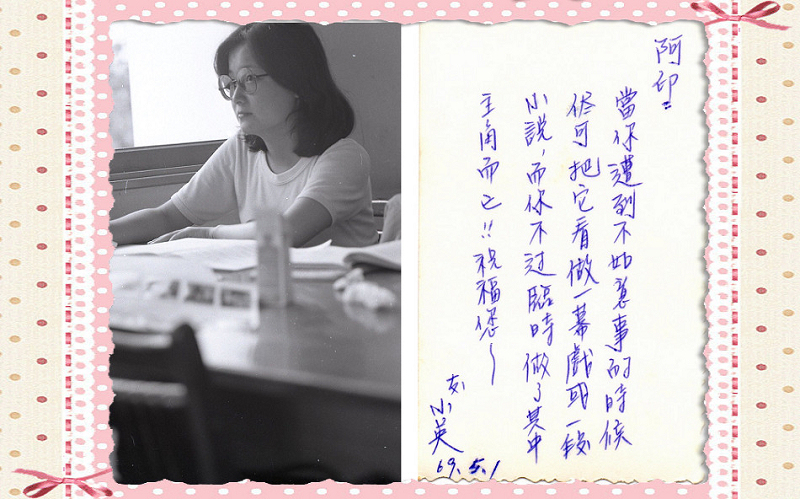 阿印!!
當你遭到不如意事的時候
你可把它看做一幕戲或一段
小說,而你不过臨時做了其中
主角而已!!祝福您~
友小英
69.5.1